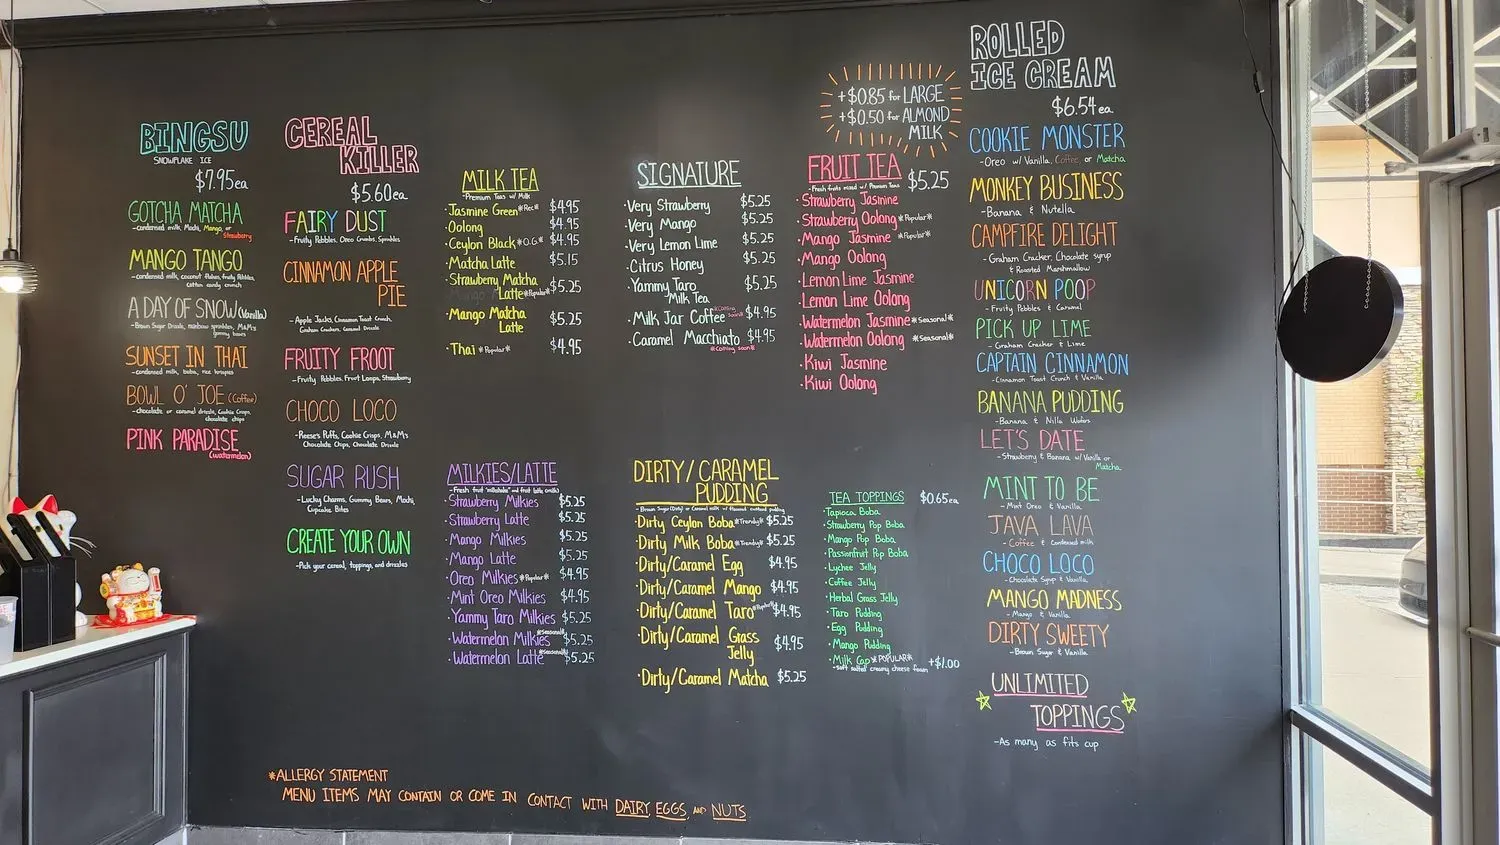 BINGSU
SNOWFLAKE ICE
$7.95ea
GOTCHA MATCHA
-condensed milk, Mochi, Mango, or
Strawberry
MANGO TANGO
-condensed milk, coconut flakes, fruity Pebbles,
cotton candy crunch
A DAY OF SNOW (Vanilla)
-Brown Sugar Drizzle, rainbow sprinkles, M&M's
gummy bears
SUNSET IN THAI
-condensed milk, boba, rice krispies
BOWL O' JOE (Coffee)
-chocolate or caramel drizzle, Cookie Crisps,
chocolate chips
PINK PARADISE
(watermelon)
CEREAL
KILLER
$5.60ea
FAIRY DUST
-Fruity Pebbles, Oreo Crumbs, Sprinkles
CINNAMON APPLE
PIE
-Apple Jacks, Cinnamon Toast Crunch,
Graham Crackers, Caramel Drizzle
FRUITY FROOT
-Fruity Pebbles, Froot Loops, Strawberry
CHOCO LOCO
-Reese's Puffs, Cookie Crisps, M&M's
Chocolate Chips, Chocolate Drizzle
SUGAR RUSH
-Lucky Charms, Gummy Bears, Mochi,
Cupcake Bites
CREATE YOUR OWN
-Pick your cereal, toppings, and drizzles
MILK TEA
-Premium Teas w/ Milk
·Jasmine Green *Rec* $4.95
·Oolong $4.95
·Ceylon Black *O.G.* $4.95
·Matcha Latte $5.15
·Strawberry Matcha
Latte *Popular* $5.25
·Mango Matcha $5.25
Latte
·Thai *Popular* $4.95
SIGNATURE
·Very Strawberry $5.25
·Very Mango $5.25
·Very Lemon Lime $5.25
·Citrus Honey $5.25
·Yummy Taro $5.25
Milk Tea
·Milk Jar Coffee *Coming soon* $4.95
·Caramel Macchiato $4.95
*Coming soon*
+$0.85 for LARGE
+$0.50 for ALMOND
MILK
FRUIT TEA $5.25
-Fresh fruits mixed w/ Premium Teas
·Strawberry Jasmine
·Strawberry Oolong *Popular*
·Mango Jasmine *Popular*
·Mango Oolong
·Lemon Lime Jasmine
·Lemon Lime Oolong
·Watermelon Jasmine *Seasonal*
·Watermelon Oolong *Seasonal*
·Kiwi Jasmine
·Kiwi Oolong
ROLLED
ICE CREAM
$6.54ea
COOKIE MONSTER
-Oreo w/ Vanilla, Coffee, or Matcha
MONKEY BUSINESS
-Banana & Nutella
CAMPFIRE DELIGHT
-Graham Cracker, Chocolate syrup
& Roasted Marshmallow
UNICORN POOP
-Fruity Pebbles & Caramel
PICK UP LIME
-Graham Cracker & Lime
CAPTAIN CINNAMON
-Cinnamon Toast Crunch & Vanilla
BANANA PUDDING
-Banana & Nilla Wafers
LET'S DATE
-Strawberry & Banana w/ Vanilla or
Matcha
MINT TO BE
-Mint Oreo & Vanilla
JAVA LAVA
-Coffee & condensed milk
CHOCO LOCO
-Chocolate Syrup & Vanilla
MANGO MADNESS
-Mango & Vanilla
DIRTY SWEETY
-Brown Sugar & Vanilla
UNLIMITED
TOPPINGS
-As many as fits cup
MILKIES/LATTE
-Fresh fruit "milkshake" and fruit latte (milk)
·Strawberry Milkies $5.25
·Strawberry Latte $5.25
·Mango Milkies $5.25
·Mango Latte $5.25
·Oreo Milkies *Popular* $4.95
·Mint Oreo Milkies $4.95
·Yummy Taro Milkies $5.25
·Watermelon Milkies *Seasonal* $5.25
·Watermelon Latte *Seasonal* $5.25
DIRTY/CARAMEL
PUDDING
-Brown Sugar (Dirty) or Caramel milk w/ flavored custard pudding
·Dirty Ceylon Boba *Trendy* $5.25
·Dirty Milk Boba *Trendy* $5.25
·Dirty/Caramel Egg $4.95
·Dirty/Caramel Mango $4.95
·Dirty/Caramel Taro *Popular* $4.95
·Dirty/Caramel Grass $4.95
Jelly
·Dirty/Caramel Matcha $5.25
TEA TOPPINGS $0.65ea
·Tapioca Boba
·Strawberry Pop Boba
·Mango Pop Boba
·Passionfruit Pop Boba
·Lychee Jelly
·Coffee Jelly
·Herbal Grass Jelly
·Taro Pudding
·Egg Pudding
·Mango Pudding
·Milk Cap *POPULAR* +$1.00
-soft salted creamy cheese foam
*ALLERGY STATEMENT
MENU ITEMS MAY CONTAIN OR COME IN CONTACT WITH DAIRY, EGGS, AND NUTS